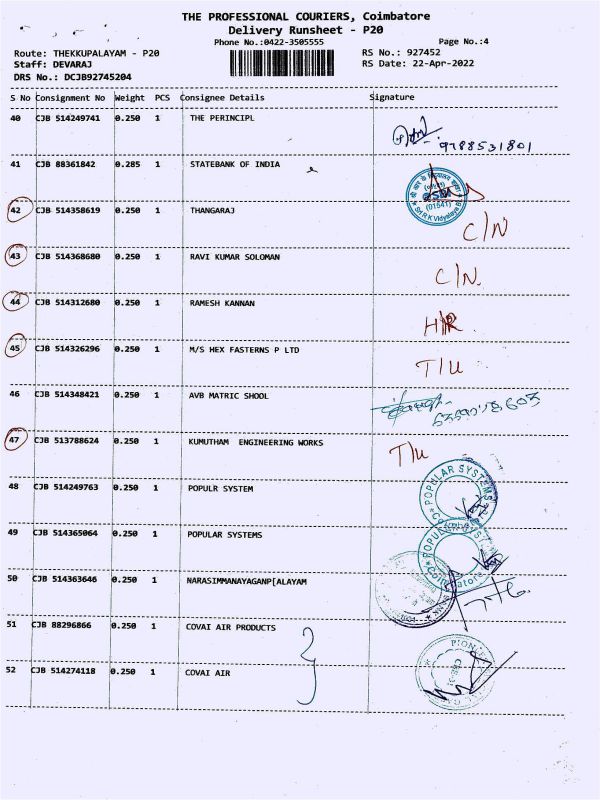 THE PROFESSIONAL COURIERS, Coimbatore
Delivery Runsheet - P20
Phone No.:0422-3505555
Page No.:4
Route: THEKKUPALAYAM - P20
RS No.: 927452
Staff: DEVARAJ
RS Date: 22-Apr-2022
DRS No.: DCJB92745204
S No Consignment No Weight PCS Consignee Details Signature
40 CJB 514249741 0.250 1 THE PERINCIPL
9788531801
41 CJB 88361842 0.285 1 STATEBANK OF INDIA
(01641)
Sri R K Vidyalaya
42 CJB 514358619 0.250 1 THANGARAJ C/N
43 CJB 514368680 0.250 1 RAVI KUMAR SOLOMAN C/N.
44 CJB 514312680 0.250 1 RAMESH KANNAN
45 CJB 514326296 0.250 1 M/S HEX FASTERNS P LTD T/U
46 CJB 514348421 0.250 1 AVB MATRIC SHOOL
47 CJB 513788624 0.250 1 KUMUTHAM ENGINEERING WORKS T/U
48 CJB 514249763 0.250 1 POPULR SYSTEM
POPULAR SYSTEMS
49 CJB 514365064 0.250 1 POPULAR SYSTEMS
POPULAR SYSTEMS
Coimbatore
50 CJB 514363646 0.250 1 NARASIMMANAYAGANP[ALAYAM
51 CJB 88296866 0.250 1 COVAI AIR PRODUCTS
52 CJB 514274118 0.250 1 COVAI AIR